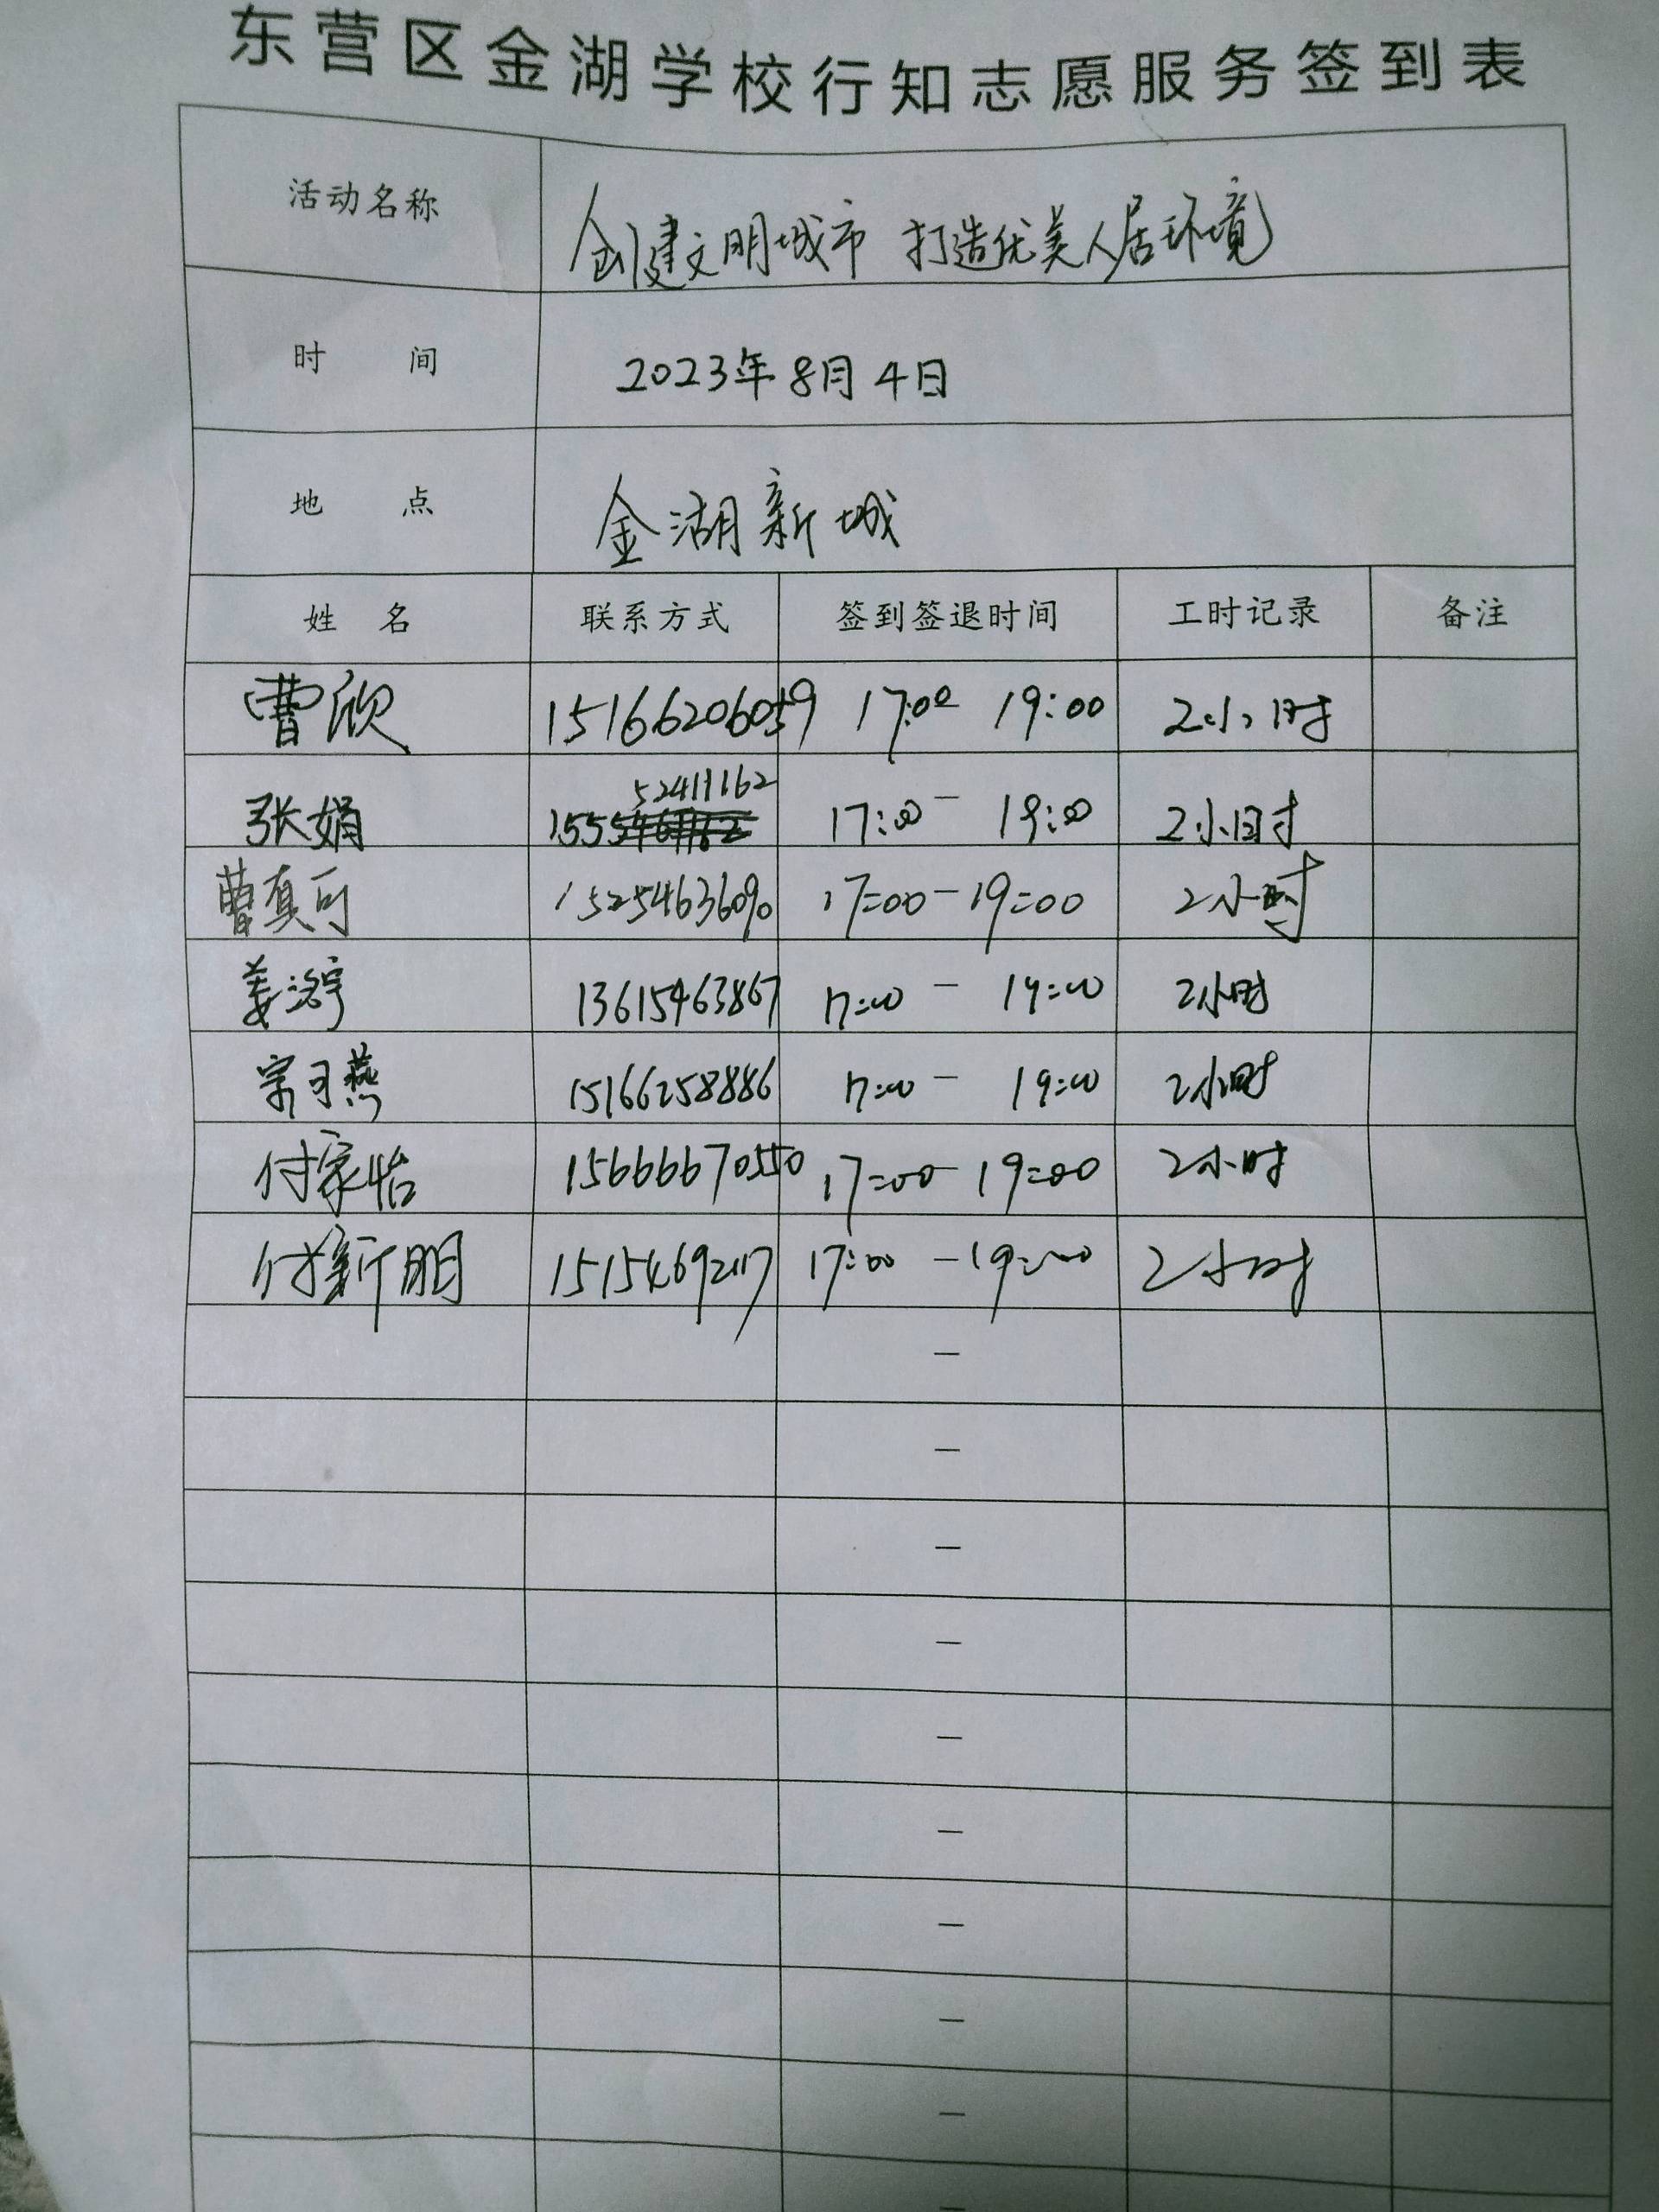 东营区金湖学校行知志愿服务签到表
活动名称 创建文明城市 打造优美人居环境
时 间 2023年8月4日
地 点 金湖新城
姓 名 联系方式 签到签退时间 工时记录 备注
曹欣 15166206059 17:00 19:00 2小时
52411162
张娟 155 17:00 — 19:00 2小时
曹真可 15254636090 17:00 — 19:00 2小时
姜 13615463867 17:00 — 19:00 2小时
宗可燕 15166258886 17:00 — 19:00 2小时
付家怡 15666670550 17:00 — 19:00 2小时
付新朋 17:00 — 19:00 2小时
—
—
—
—
—
—
—
—
—
—